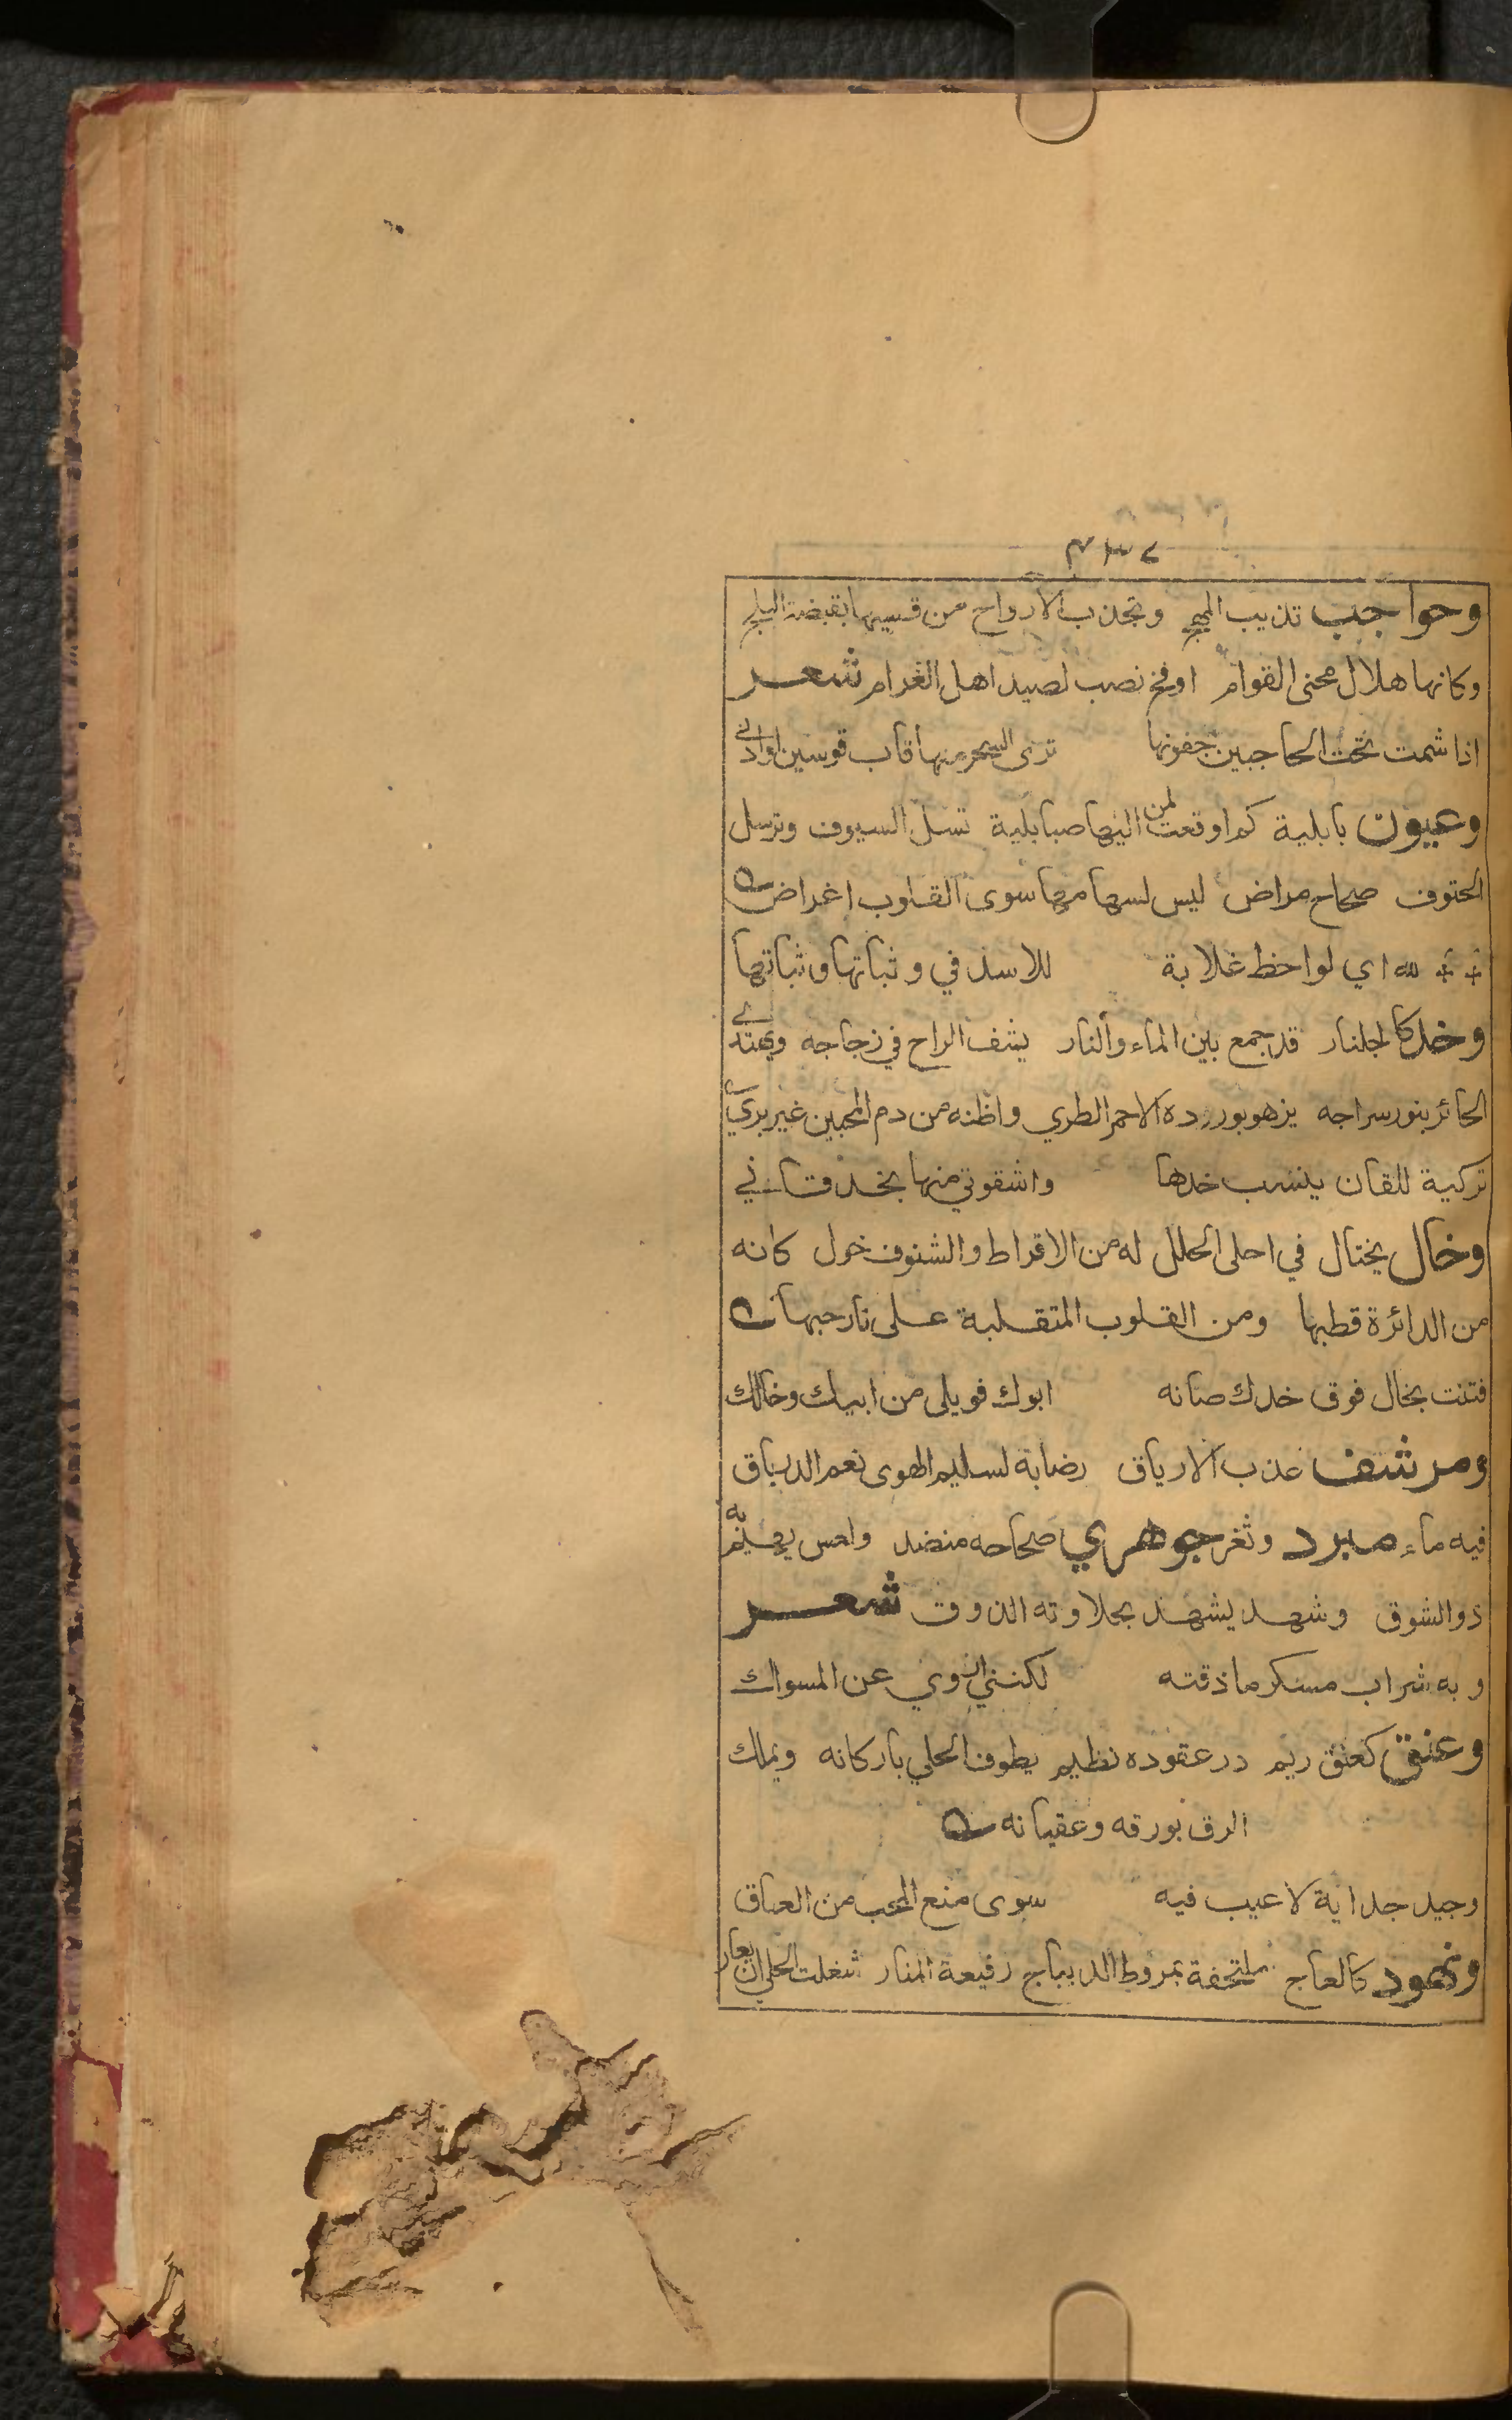 وحواجب تذيب المهج وتجذب الارواح من قسيها بقبضة البلج
وكانها هلال محنى القوام او فخ نصب لصيد اهل الغرام شعر
اذا شمت تحت الحاجبين جفونها ترى السحر منها قاب قوسين او ادنى
وعيون بابلية كم اوقعت لمن اليها صبا بلية تسل السيوف وترسل
الحتوف صحاح مراض ليس لسهامها سوى القلوب اغراض
لله اي لواحظ غلابة للاسد في وثباتها وثباتها
وخد كالجلنار قد جمع بين الماء والنار يشف الراح في زجاجه ويهتدي
الحائر بنور سراجه يزهو بورده الاحمر الطري واظنه من دم المحبين غير بري
تركية للقان ينسب خدها واشقوتي منها بخد قاني
وخال يختال في احلى الحلل له من الاقراط والشنوف خول كانه
من الدائرة قطبها ومن القلوب المتقلبة على نار حبها
فتنت بخال فوق خدك صانه ابوك فويلى من ابيك وخالك
ومرشف عذب الارياق رضابه لسليم الهوى نعم الدرياق
فيه ماء مبرد وثغر جوهري صحاحه منضد ولعس يهيم به
ذو الشوق وشهد يشهد بحلاوته الذوق شعر
وبه شراب مسكر ما ذقته لكنني اروي عن المسواك
وعنق كعنق ريم در عقوده نظيم يطوف الحلي باركانه ويملك
الرق بورقه وعقيانه
وجيد جداية لا عيب فيه سوى منع المحب من العناق
ونهود كالعاج ملتحفة بمروط الديباج رفيعة المنار شغلت الحلي ان يعار